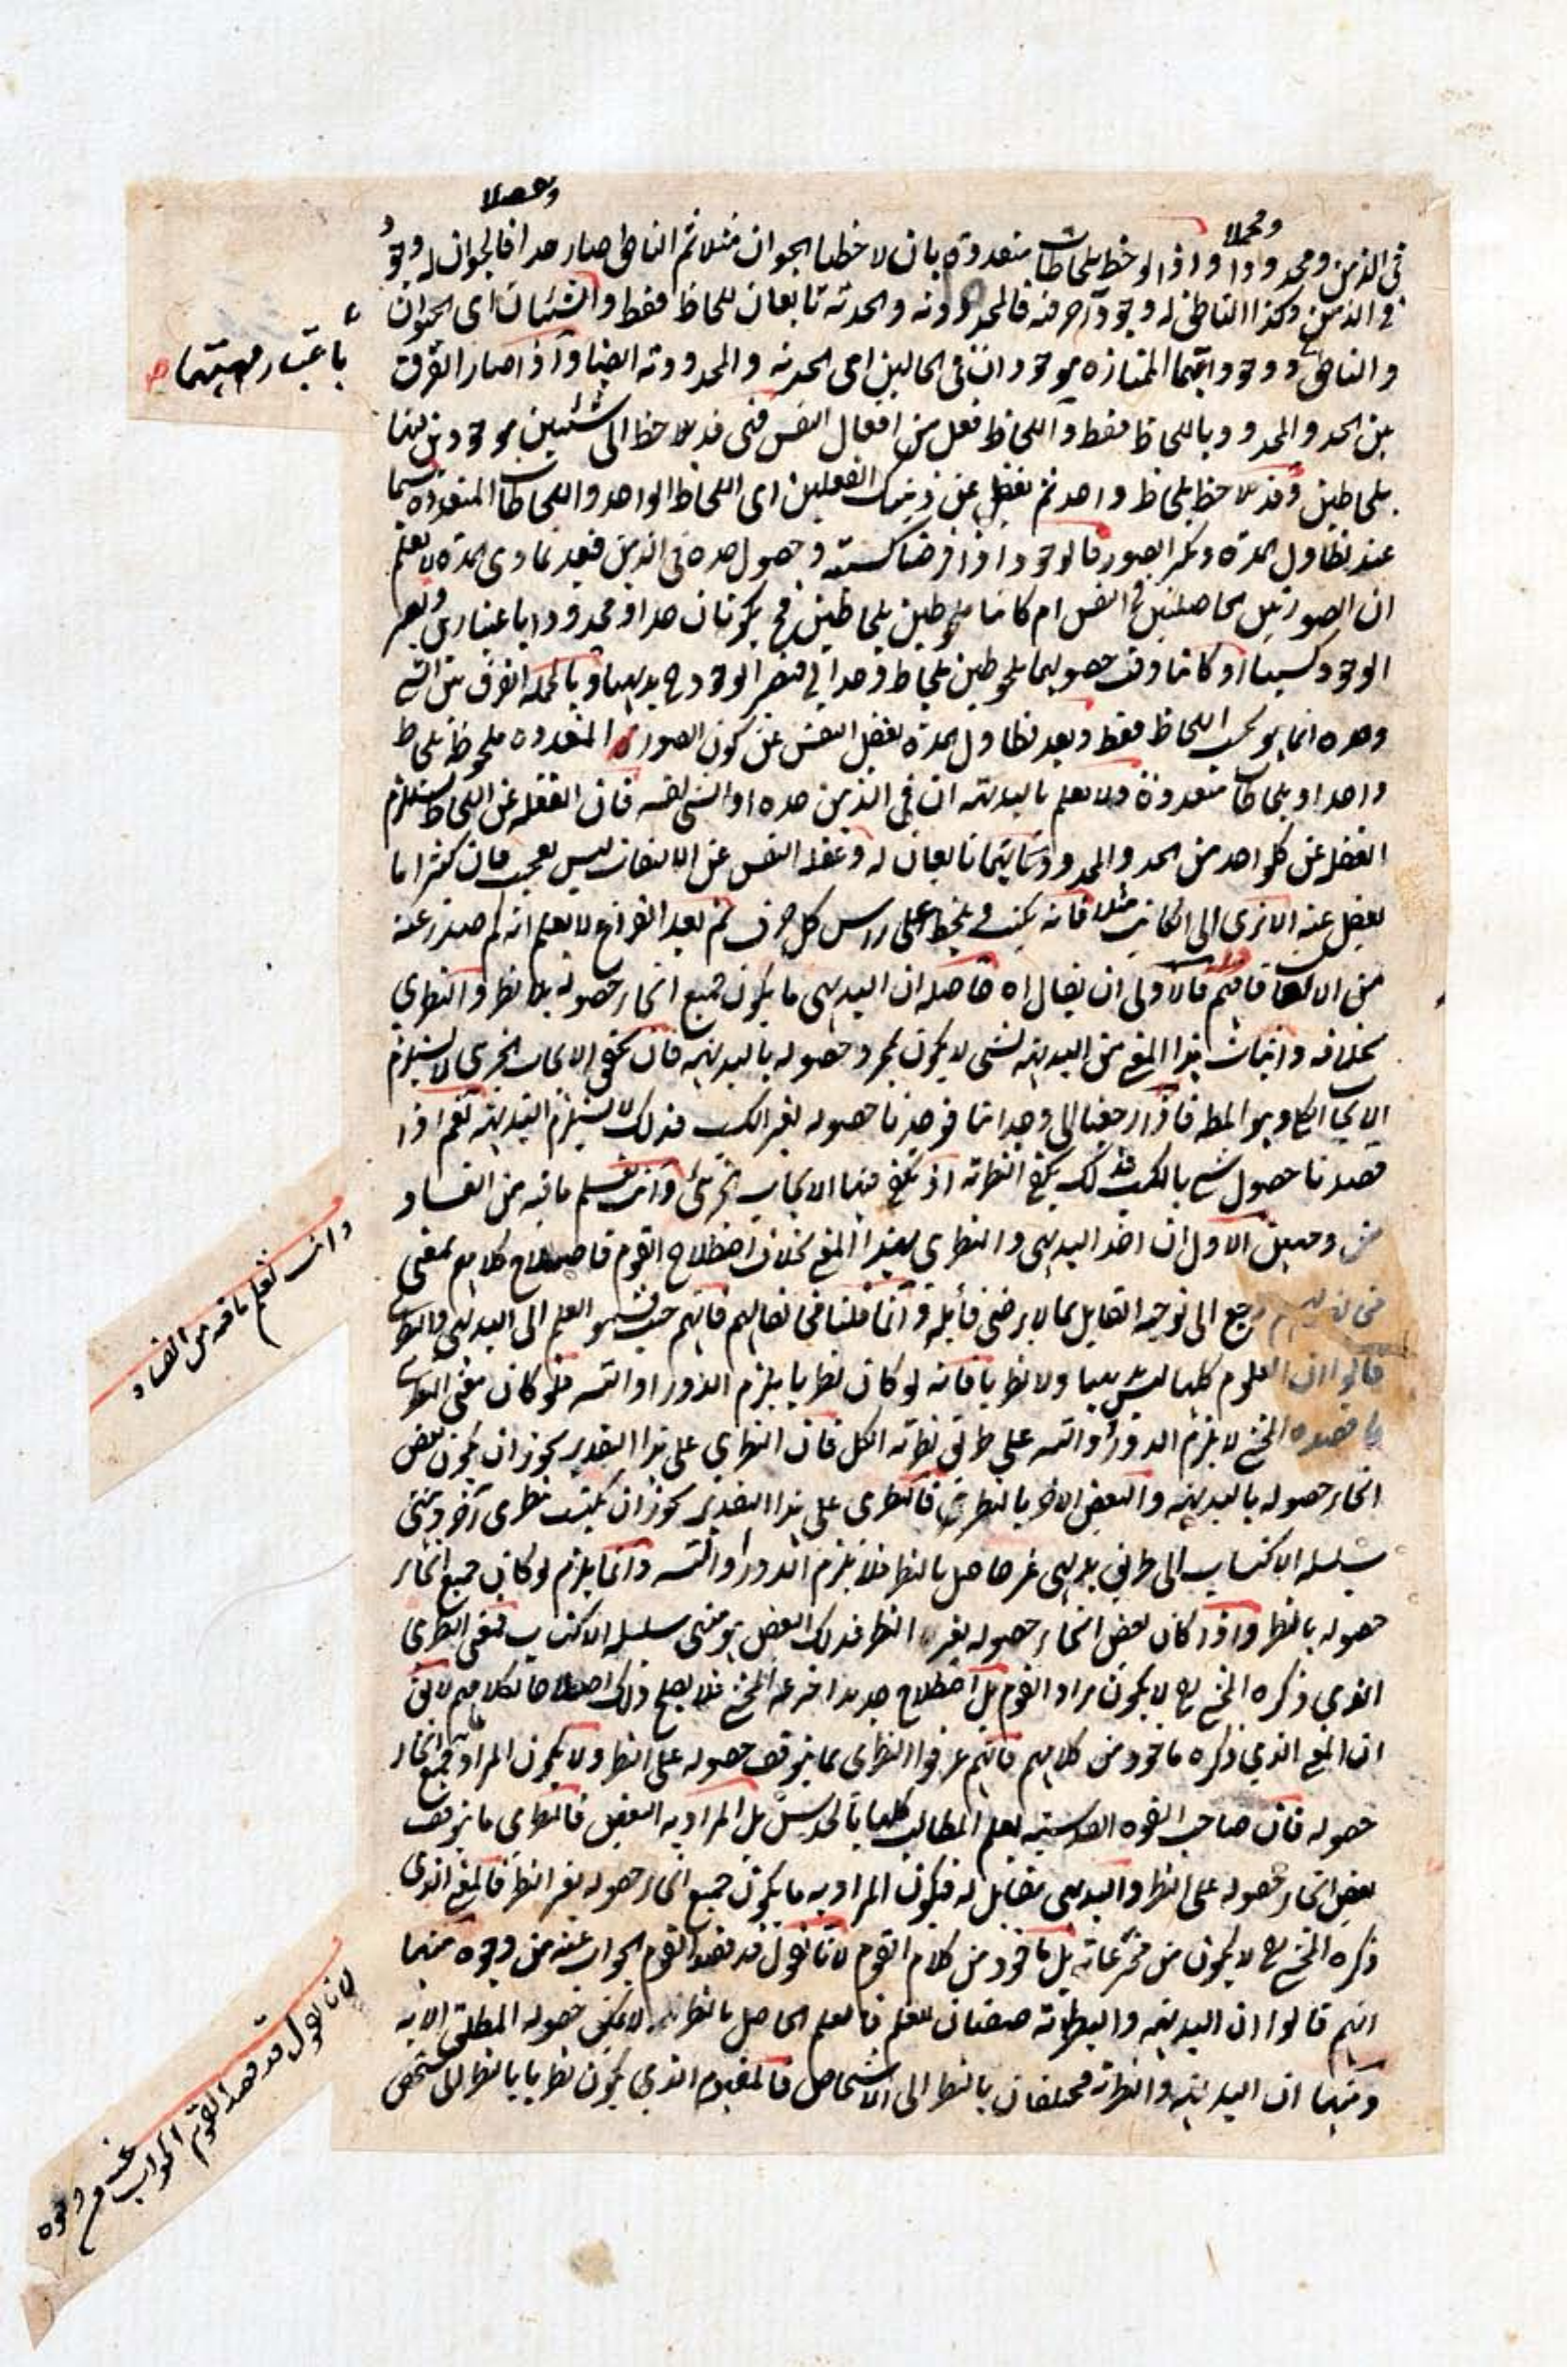 ومجملا
وتفصيلا
في الذهن ومحدودا واذا لوحظ بلحاظات متعددة بان لاحظنا الحيوان مثلا ثم الناطق صار حدا فالحيوان له وجود
في الذهن وكذا الناطق له وجود آخر فيه فالمحدودية والحدية تابعان للحاظ فقط والشيئان اى الحيوان
والناطق ووجوداتهما الممتازة موجودان في الحالين اى الحدية والمحدودية ايضا واذا صار الفرق
باعتبار مهيتهما
بين الحد والمحدود باللحاظ فقط واللحاظ فعل من افعال النفس فهي قد تلاحظ الى شيئين موجودين فيها
بلحاظين وقد تلاحظ بلحاظ واحد ثم تغفل عن ذينك الفعلين اى اللحاظ الواحد واللحاظات المتعددة سيما
عند تطاول المدة وتكثر الصور فالوجود اذا فرضنا كسبيته وحصول حده في الذهن فبعد تمادى المدة لا يعلم
ان الصورتين الحاصلتين في النفس ام كانتا ملحوظين بلحاظين فح يكونان حدا ومحدودا باعتبارين ويصير
الوجود كسبيا او كانتا وقت حصولهما ملحوظين بلحاظ وحداني فيصير الوجود ح بديهيا وبالجملة الفرق بين الشي
وحده انما هو بحسب اللحاظ فقط وبعد تطاول المدة تغفل النفس عن كون الصورة المتعددة ملحوظة بلحاظ
واحد او بلحاظات متعددة ولا تعلم بالبديهة ان في الذهن حده او الشي نفسه فان الغفلة عن اللحاظ يستلزم
الغفلة عن كل واحد من الحد والمحدود لانهما تابعان له وغفلة النفس عن الالتفات ليس بعجيب فان كثيرا ما
يغفل عنه الا ترى الى الكاتب مثلا فانه يكتب ويلحظ على راس كل حرف ثم بعد الفراغ لا يعلم انه كم صدر عنه
من الالتفات فافهم قوله فالاولى ان يقال اه حاصله ان البديهى ما يكون جميع انحاء حصوله بلا نظر والنظري
بخلافه واثبات هذا المعنى من البديهية لشي لا يكون بمجرد حصوله بالبديهة فان تحقق الايجاب الجزئي لا يستلزم
الايجاب الكلى وهو المطلوب فاذا رجعنا الى وجداننا فوجدنا حصوله بغير الكسب فذلك لا يستلزم البديهية نعم اذا
قصدنا حصول شي بالكسب فذلك يكفى النظرية اذ يكفى فيها الايجاب الجزئى وانت تعلم ما فيه من الفساد
وانت تعلم ما فيه من الفساد
من وجهين الاول ان اخذ البديهى والنظرى بهذا المعنى خلاف اصطلاح القوم فاصلاح كلامهم بمعنى
من رجع الى توجيه القايل بما لا يرضى قائله وانما قلنا مخالفهم فانهم حيث قسموا العلم الى البديهى والنظري
قالوا ان العلوم كلها ليس بديهيا ولا نظريا فانه لو كان نظريا يلزم الدور او التسلسل فلو كان معنى النظري
ما قصده المحشي لا يلزم الدور او التسلسل على طريق نظرية الكل فان النظري على هذا التقدير يجوز ان يكون بعض
انحاء حصوله بالبديهة والبعض الاخر بالنظر فالنظرى على هذا التقدير يجوز ان يكتسب بنظرى آخر وينتهى
سلسلة الاكتساب الى طريق بديهى غير حاصل بالنظر فلا يلزم الدور او التسلسل وانما يلزم لو كان جميع انحاء
حصوله بالنظر واذا كان بعض انحاء حصوله بغير النظر فذلك البعض هو منتهى سلسلة الاكتساب فمعنى النظرى
الذي ذكره المحشي ره لا يكون مراد القوم بل اصطلاح جديد اخترعه المحشي فلا يصلح ذلك اصلاحا لكلامهم لا يق
ان المعنى الذي ذكره ماخوذ من كلامهم فانهم عرفوا النظرى بما يتوقف حصوله على النظر ولا يكون المراد جميع انحاء
حصوله فان صاحب القوة القدسية يعلم المطالب كلها بالحدس بل المراد به البعض فالنظرى ما يتوقف
بعض انحاء حصوله على النظر والبديهى مقابل له فيكون المراد به ما يكون جميع انحاء حصوله بغير النظر فالمعنى الذى
ذكره المحشي ره لا يكون من مخترعاته بل ماخوذ من كلام القوم لانا نقول قد قصد القوم الجواب عنه من وجوه منها
لانا نقول قد قصد القوم الجواب عنه من وجوه
انهم قالوا ان البديهية والنظرية صفتان للعلم فالعلم الحاصل بالنظر لا يمكن حصوله المطلق الا به
ومنها ان البديهية والنظرية مختلفان بالنظر الى الاشخاص فالمفهوم الذي يكون نظريا بالنظر الى شخص